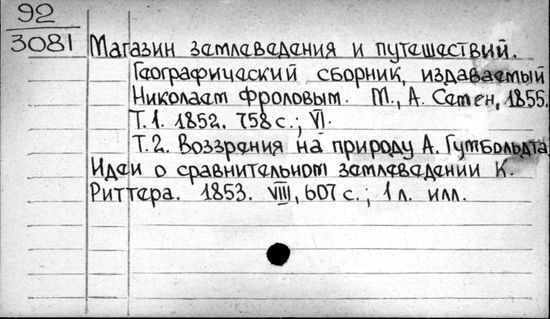 92
3081
Магазин землеведения и путешествий.
Географический сборник, издаваемый
Николаем Фроловым. М., А. Семен, 1855.
Т.1. 1852. 758 с.; VI.
Т.2. Воззрения на природу А. Гумбольдта
Идеи о сравнительном землеведении К.
Риттера. 1853. VIII, 607 с.; 1 л. илл.